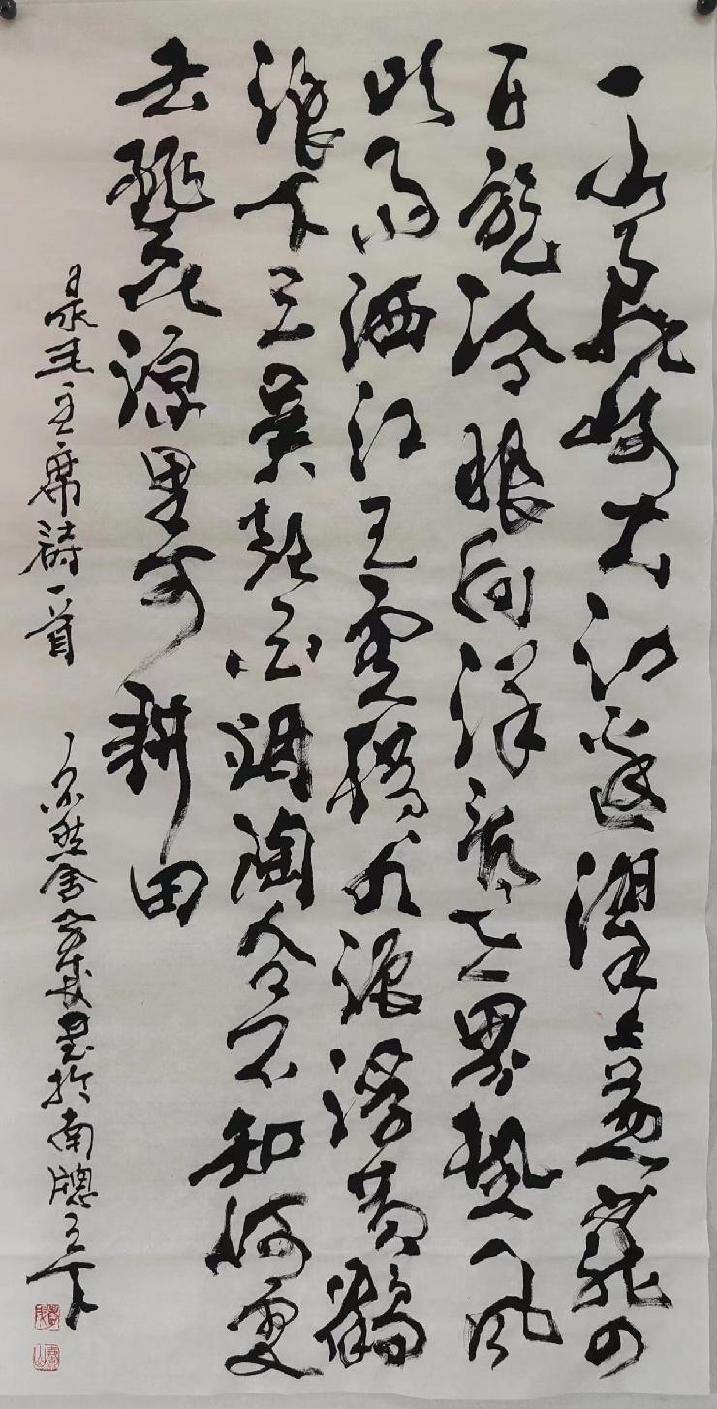 一山飛峙大江邊躍上葱蘢四
百旋冷眼向洋看世界熱風
吹雨洒江天雲橫九派浮黃鶴
浪下三吳起白烟陶令不知何處
去桃花源里可耕田
录毛主席詩一首
書於南窗之下